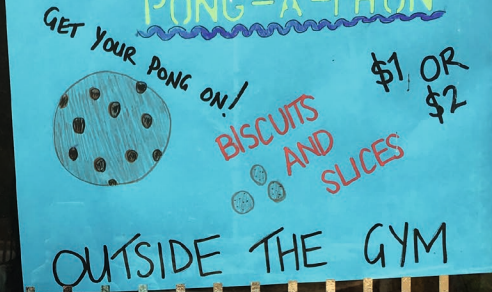 PONG-A-THON
GET YOUR PONG ON!
$1 OR
$2
BISCUITS
AND
SLICES
OUTSIDE THE GYM